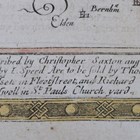 Bernhm
Elden
cribed by Christopher Saxton aug
by I. Speed Are to be sold by Tho
sett in Fleetstreet, and Richard
swell in St. Pauls Church yard.